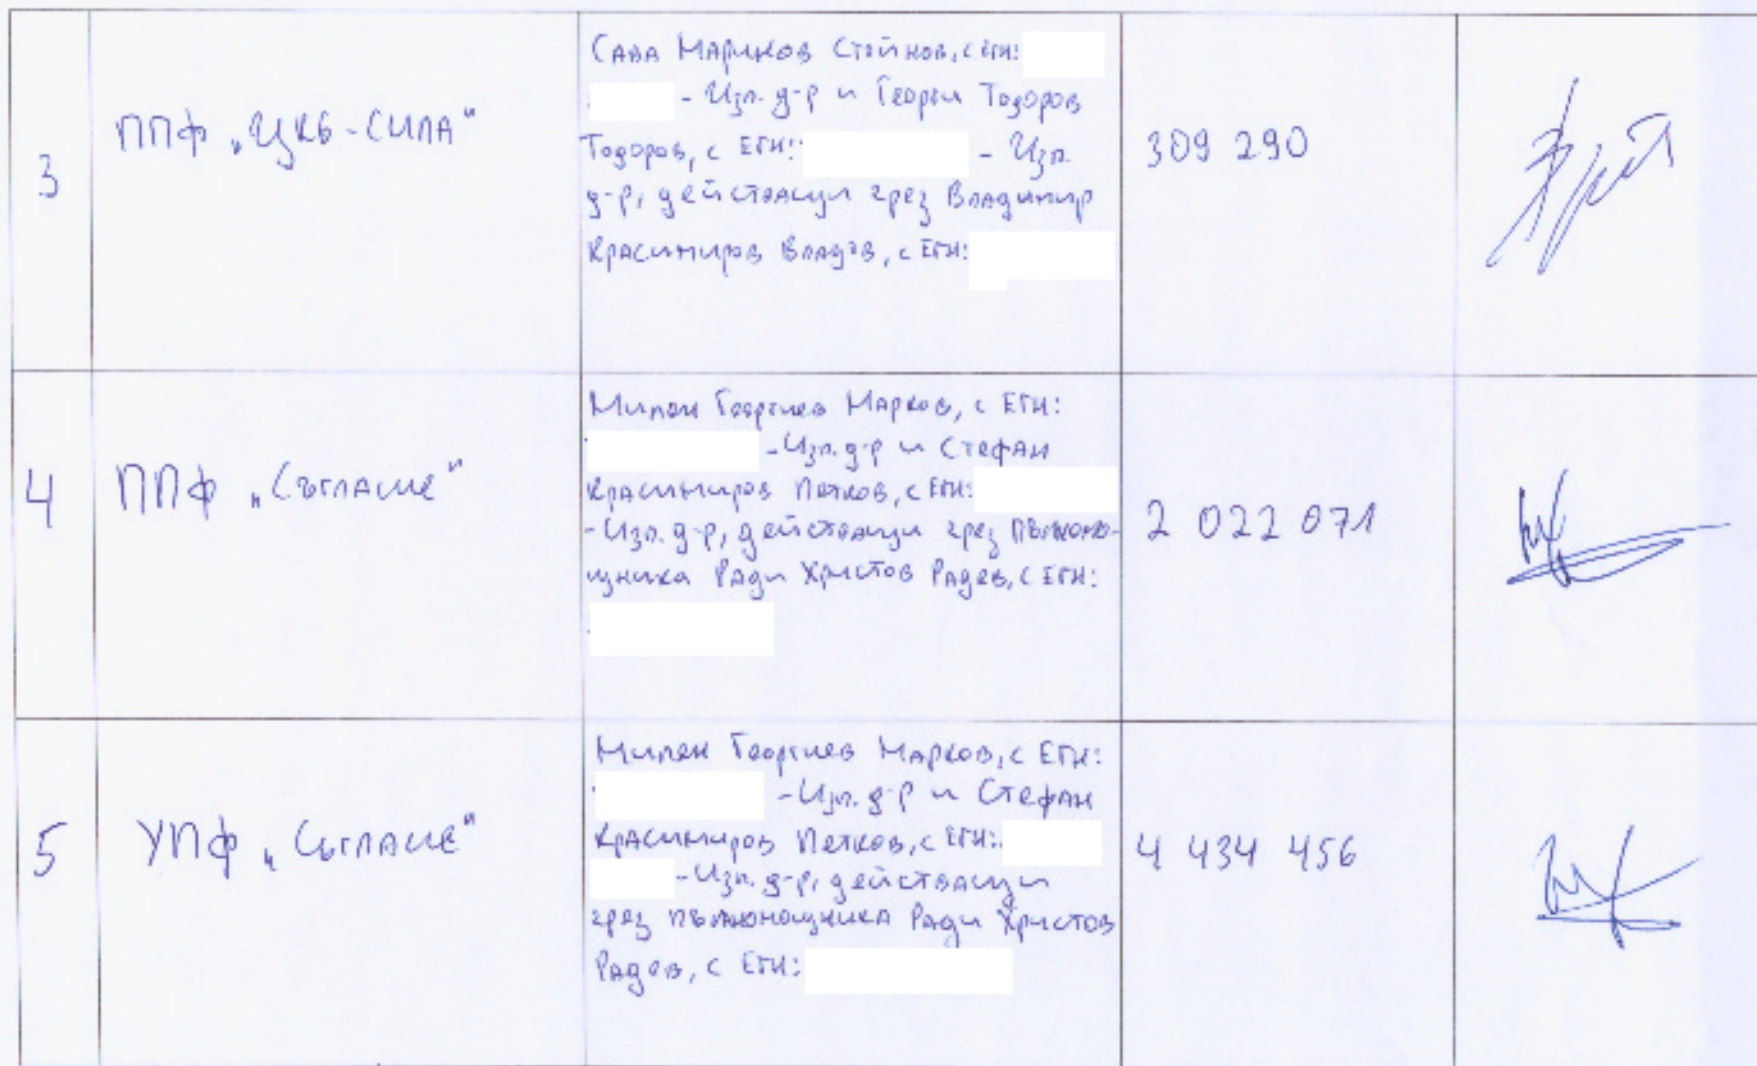 3
ППФ „ЦКБ-СИЛА“
САВА МАРИНОВ СТОЙНОВ, с ЕГН:
- Изп. д-р и Георги Тодоров
Тодоров, с ЕГН: - Изп.
д-р, действащи чрез Владимир
Красимиров Владов, с ЕГН:
309 290
4
ППФ „Съгласие“
Милен Георгиев Марков, с ЕГН:
- Изп. д-р и Стефан
Красимиров Петков, с ЕГН:
- Изп. д-р, действащи чрез пълномо-
щника Ради Христов Радев, с ЕГН:
2 022 071
5
УПФ „Съгласие“
Милен Георгиев Марков, с ЕГН:
- Изп. д-р и Стефан
Красимиров Петков, с ЕГН:
- Изп. д-р, действащи
чрез пълномощника Ради Христов
Радев, с ЕГН:
4 434 456